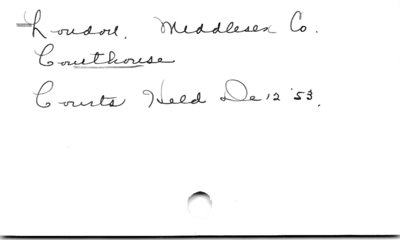 London. Middlesex Co.
Courthouse
Courts Held De 12 '53.